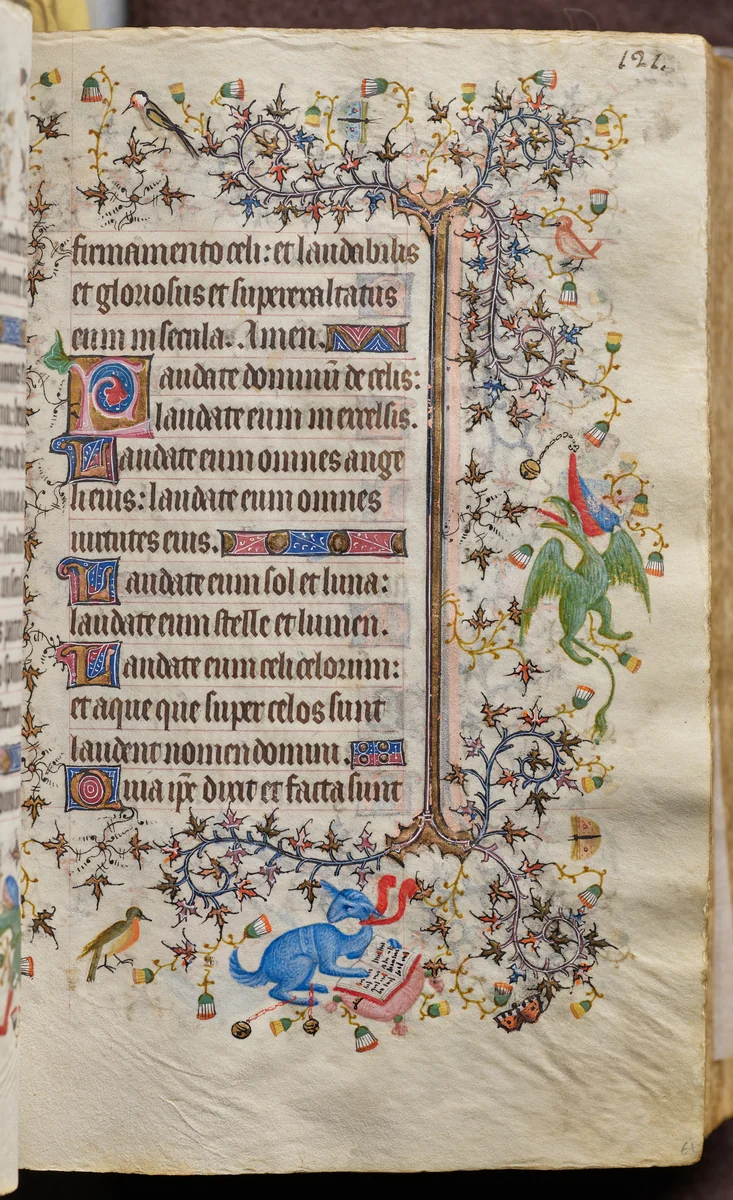 121.
firmamento celi: et laudabilis
et gloriosus et superexaltatus
eum in secula. Amen.
Laudate dominū de celis:
laudate eum in excelsis.
Laudate eum omnes ange
li eius: laudate eum omnes
uirtutes eius.
Laudate eum sol et luna:
laudate eum stelle et lumen.
Laudate eum celi celorum:
et aque que super celos sunt
laudent nomen domini.
Quia ip̄e dixit et facta sunt